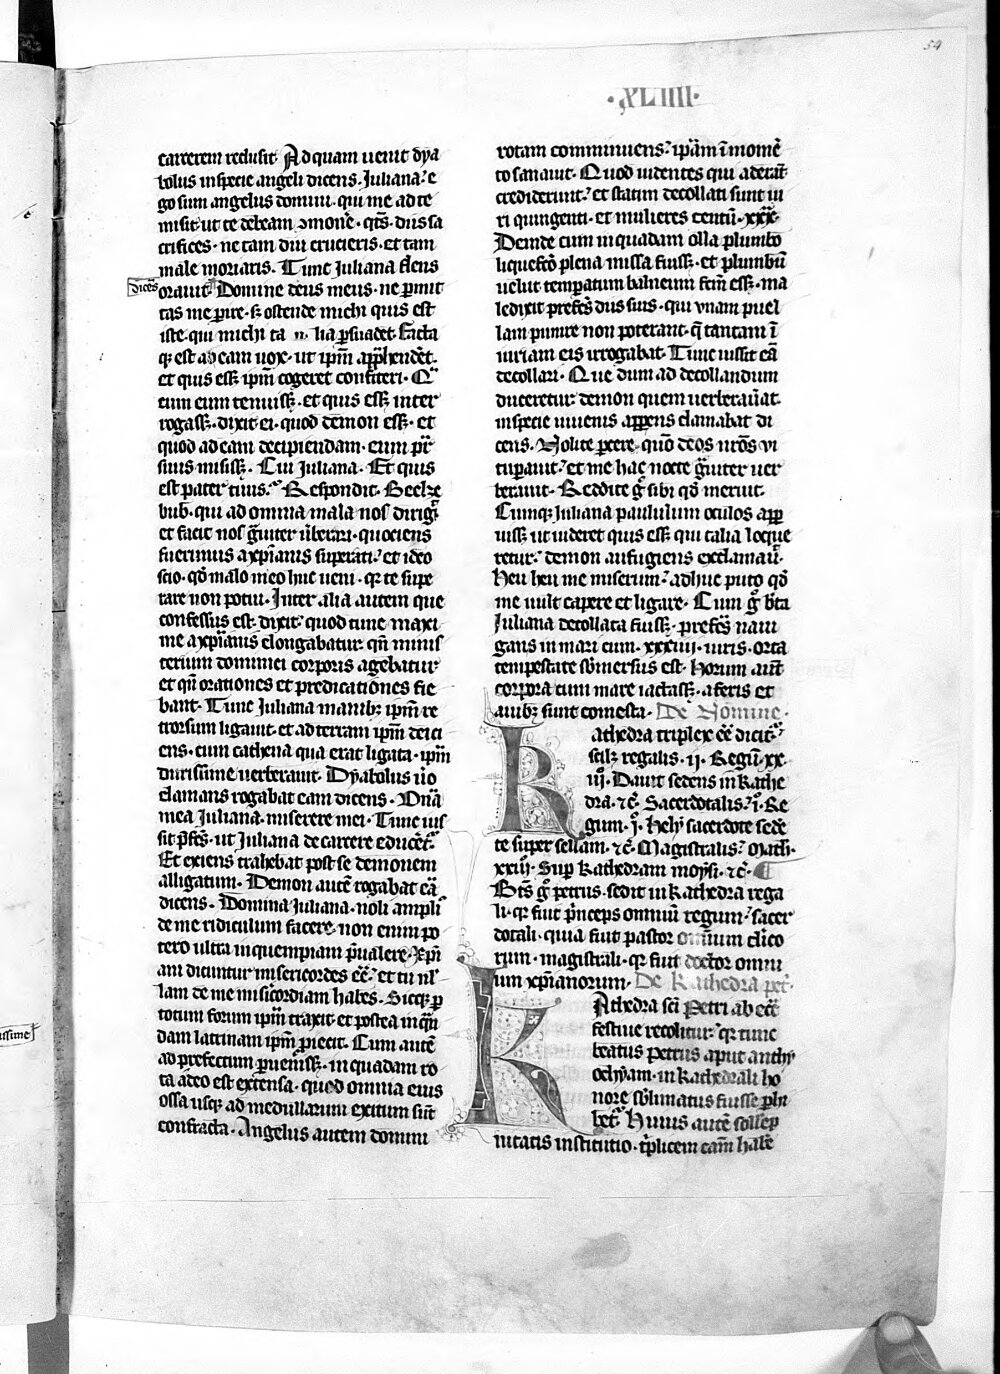 54
·XLIIII·
carcerem reclusit. Ad quam uenit dya
bolus in specie angeli dicens. Iuliana? e
go sum angelus domini. qui me ad te
misit ut te debeam ꝯmonē· qt̄ꝰ· diis sa
crifices· ne tam diu crucieris. et tam
male moriaris. Tunc Iuliana flens
dicēs
orauit Domine deus meus· ne ꝑmit
tas me ꝑire· sꝫ ostende michi quis est
iste· qui michi ta lia ꝑsuadet. facta
qꝫ est ad eam uox· ut ip̄m app̄hendēt.
et quis essꝫ ip̄m cogeret confiteri. Q̄
cum eum tenuissꝫ· et quis essꝫ inter
rogassꝫ. dixit ei· quod demon essꝫ· et
quod ad eam decipiendam· eum pr̄
suus misissꝫ. Cui Iuliana. Et quis
est pater tuus? Respondit. Beelze
bub. qui ad omnia mala nos dirigit
et facit nos gͣuiter ūberari· quociens
fuerimus a xp̄ianis superati? et ideo
scio· qd̄ malo meo huc ueni· qꝛ te supe
rare non potui. Inter alia autem que
confessus est. dixit? quod tunc maxi
me a xp̄ianis elongabatur· qn̄ minis
terium dominici corporis agebatur
et qn̄ orationes et predicationes fie
bant. Tunc Iuliana manibꝫ ip̄m re
trorsum ligauit· et ad terram ip̄m deici
ens· cum cathena qua erat ligata· ip̄m
durissime uerberauit. Dyabolus ūo
clamans rogabat eam dicens. Dn̄a
mea Iuliana· miserere mei. Tunc ius
sit p̄fꝰ· ut Iuliana de carcere educet̄.
Et exiens trahebat post se demonem
alligatum. Demon autē rogabat eā
dicens. Domina Iuliana· noli ampliꝰ
de me ridiculum facere· non enim po
tero ultra in quempiam p̄ualere. Xp̄i
ani dicuntur misericordes eē? et tu nl̄
lam de me misicordiam habes. Sicqꝫ ꝑ
totum forum ip̄m traxit· et postea in q̄n
dam latrinam ip̄m ꝓiecit. Cum autē
ad prefectum ꝑuenissꝫ· in quadam ro
ta adeo est extensa. quod omnia eius
ossa usqꝫ ad medullarum exitum sūt
confracta. Angelus autem domini
rotam comminuens? ip̄am ī momē
to sanauit. Quod uidentes qui aderāt
crediderunt? et statim decollati sunt ui
ri quingenti· et mulieres centū· xxx·
Deinde cum in quadam olla plumbo
liquefc̄o plena missa fuissꝫ· et plumbū
uelut temperatum balneum fcm̄ essꝫ· ma
ledixit prefc̄s diis suis· qui vnam puel
lam punire non poterant· q̄ tantam ī
iuriam eis irrogabat. Tunc iussit eā
decollari. Que dum ad decollandum
duceretur· demon quem uerberau̅at
in specie iuuenis apparens clamabat di
cens. Nolite ꝑcere· qm̄ deos ur̄os vi
tuꝑauit? et me hac nocte gͣuiter uer
berauit. Reddite gͦ sibi qd̄ meruit.
Cumqꝫ Iuliana paululum oculos apꝑ
uissꝫ ut uideret quis essꝫ qui talia loque
retur? demon aufugiens exclamau̅.
Heu heu me miserum? adhuc puto qd̄
me uult capere et ligare. Cum gͦ bt̄a
Iuliana decollata fuissꝫ· prefc̄s naui
gans in mari cum· xxxiiij· uiris· orta
tempestate sb̄mersus est. Horum aūt
corpora cum mare iactassꝫ· a feris et
auibꝫ sunt comesta. De Nomine·
Kathedra triplex eē dicit?
scilꝫ regalis· ii· Regū· xx·
iij· Dauit sedens in kathe
dra· ⁊c̄· Sacerdotalis? i· Re
gum· j· Hely sacerdote sede
te super sellam· ⁊c̄· Magistralis? math·
xxiij· Sup kathedram moysi· ⁊c̄· ¶
Bt̄s gͦ petrus· sedit in kathedra rega
li· qꝛ fuit p̄nceps omniū regum? sacer
dotali· quia fuit pastor omnium cl̄ico
rum· magistrali· qꝛ fuit doctor omni
um xp̄ianorum. De Kathedra pet·
Kathedra sc̄i Petri ab ecc̄
festiue recolitur? qꝛ tunc
beatus Petrus aput anthy
ochyam· in kathedrali ho
nore sb̄limatus fuisse ꝑhi
bet̄. Huius autē sollep
nitatis institutio· tp̄licem cām habē